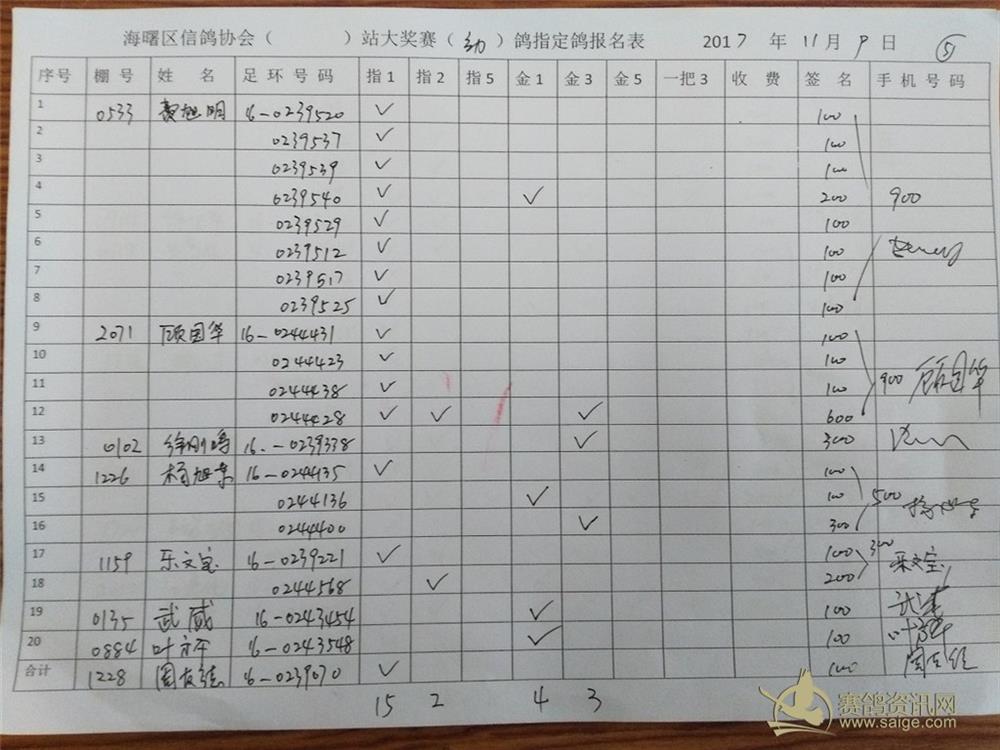 海曙区信鸽协会（ ）站大奖赛（幼）鸽指定鸽报名表 2017 年 11 月 9 日 ⑤
序号 棚号 姓名 足环号码 指1 指2 指5 金1 金3 金5 一把3 收费 签名 手机号码
1 0533 旭明 16-0239520 ✓ 100
2 0239537 ✓ 100
3 0239539 ✓ 100
4 0239540 ✓ ✓ 200 900
5 0239529 ✓ 100
6 0239512 ✓ 100
7 0239517 ✓ 100
8 0239525 ✓ 100
9 2071 顾国华 16-0244431 ✓ 100
10 0244423 ✓ 100
11 0244438 ✓ 100 900 顾国华
12 0244428 ✓ ✓ ✓ 600
13 0102 徐刚 16-0239338 ✓ 300
14 1226 杨旭东 16-0244135 ✓ 100
15 0244136 ✓ 100 500
16 0244400 ✓ 300
17 1159 乐文宝 16-0239221 ✓ 100 300 乐文宝
18 0244568 ✓ 200
19 0135 武威 16-0243454 ✓ 100
20 0884 叶 16-0243548 ✓ 100
合计 1228 周友 16-0239070 ✓ 100
15 2 4 3
赛鸽资讯网
www.saige.com